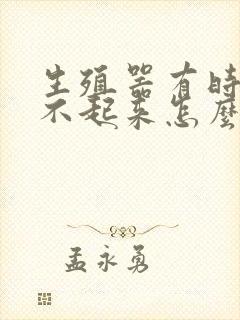 生殖器有時
不起来怎麼
孟永勇